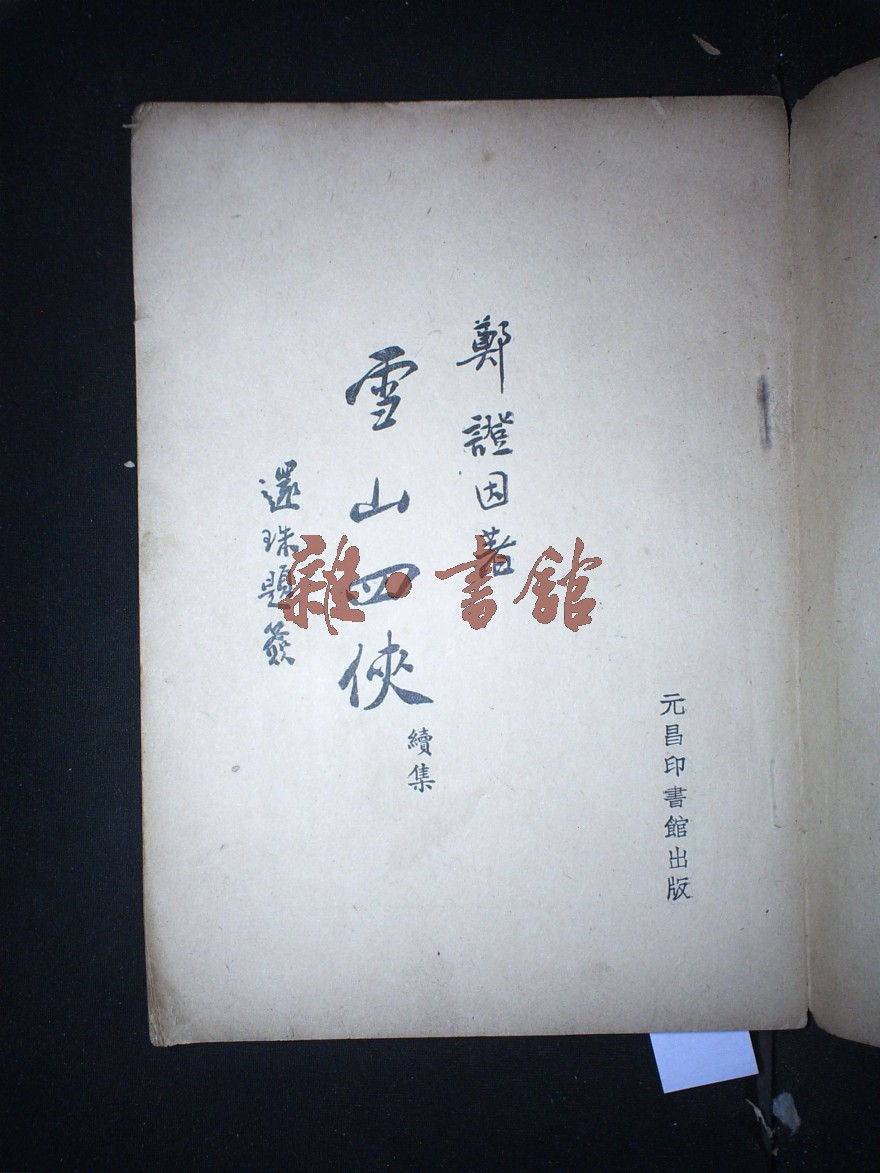 元昌印書館出版
鄭證因著
雪山四俠
續集
還珠題簽
雜·書館